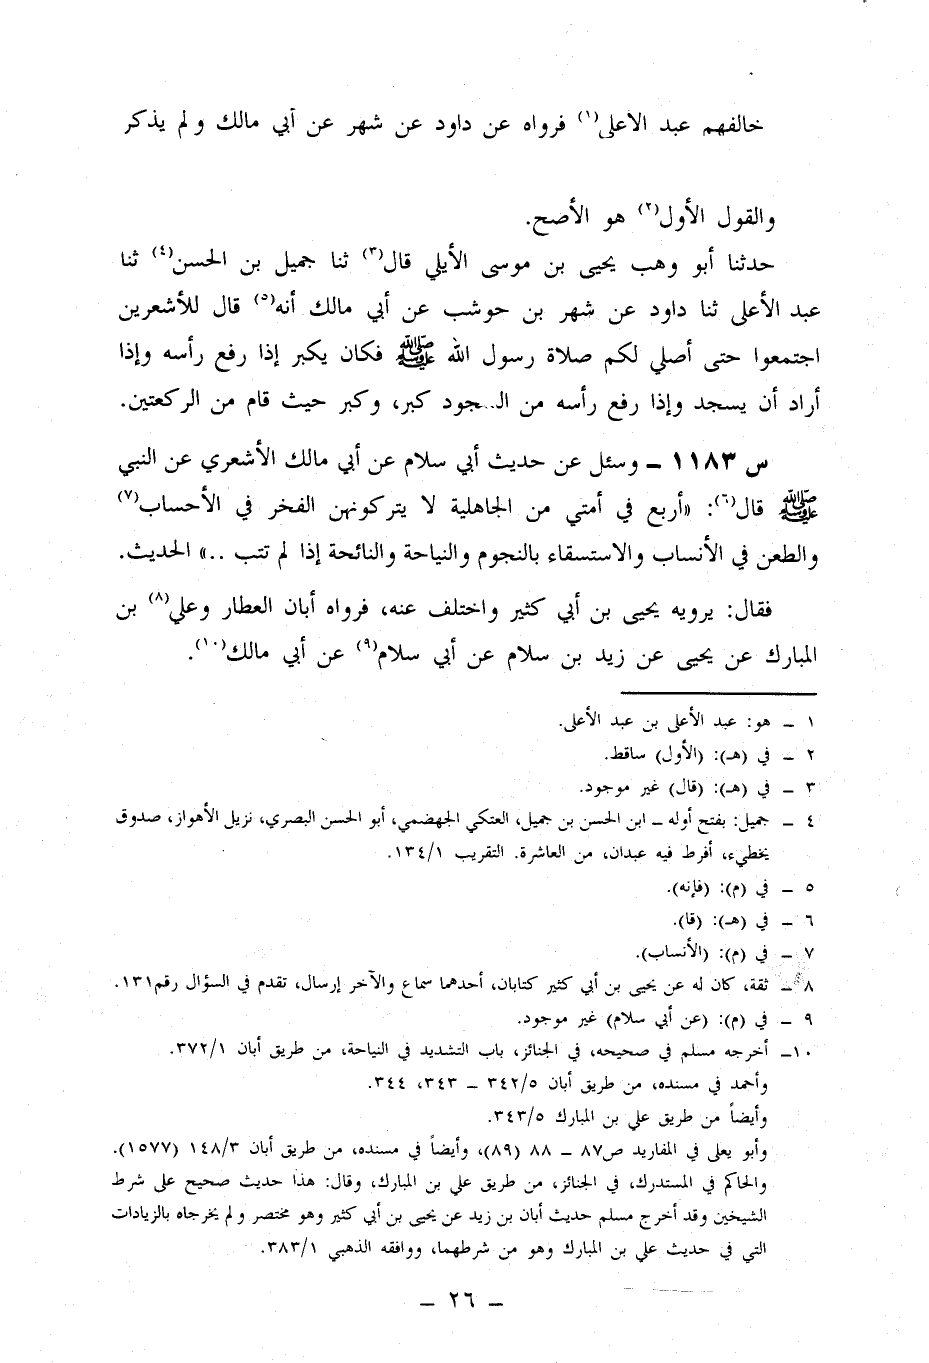 خالفهم عبد الاعلى(١) فرواه عن داود عن شهر عن أبي مالك ولم يذكر
والقول الأول(٢) هو الأصح.
حدثنا أبو وهب يحيى بن موسى الأيلي قال(٣) ثنا جميل بن الحسن(٤) ثنا
عبد الأعلى ثنا داود عن شهر بن حوشب عن أبي مالك أنه(٥) قال للأشعرين
اجتمعوا حتى أصلي لكم صلاة رسول الله ﷺ فكان يكبر إذا رفع رأسه وإذا
أراد أن يسجد وإذا رفع رأسه من السجود كبر، وكبر حيث قام من الركعتين.
س ١١٨٣ ـ وسئل عن حديث أبي سلام عن أبي مالك الأشعري عن النبي
ﷺ قال(٦): «أربع في أمتي من الجاهلية لا يتركونهن الفخر في الأحساب(٧)
والطعن في الأنساب والاستسقاء بالنجوم والنياحة والنائحة إذا لم تتب ..» الحديث.
فقال: يرويه يحيى بن أبي كثير واختلف عنه، فرواه أبان العطار وعلي(٨) بن
المبارك عن يحيى عن زيد بن سلام عن أبي سلام(٩) عن أبي مالك(١٠).
١ ـ هو: عبد الأعلى بن عبد الأعلى.
٢ ـ في (هـ): (الأول) ساقط.
٣ ـ في (هـ): (قال) غير موجود.
٤ ـ جميل: بفتح أوله ـ ابن الحسن بن جميل، العتكي الجهضمي، أبو الحسن البصري، نزيل الأهواز، صدوق
يخطيء، أفرط فيه عبدان، من العاشرة. التقريب ١٣٤/١.
٥ ـ في (م): (فإنه).
٦ ـ في (هـ): (قا).
٧ ـ في (م): (الأنساب).
٨ـ ثقة، كان له عن يحيى بن أبي كثير كتابان، أحدهما سماع والآخر إرسال، تقدم في السؤال رقم١٣١.
٩ ـ في (م): (عن أبي سلام) غير موجود.
١٠ـ أخرجه مسلم في صحيحه، في الجنائز، باب التشديد في النياحة، من طريق أبان ٣٧٢/١.
وأحمد في مسنده، من طريق أبان ٣٤٢/٥ ـ ٣٤٣، ٣٤٤.
وأيضاً من طريق علي بن المبارك ٣٤٣/٥.
وأبو يعلى في المفاريد ص٨٧ ـ ٨٨ (٨٩)، وأيضاً في مسنده، من طريق أبان ١٤٨/٣ (١٥٧٧).
والحاكم في المستدرك، في الجنائز، من طريق علي بن المبارك، وقال: هذا حديث صحيح على شرط
الشيخين وقد أخرج مسلم حديث أبان بن زيد عن يحيى بن أبي كثير وهو مختصر ولم يخرجاه بالزيادات
التي في حديث علي بن المبارك وهو من شرطهما، ووافقه الذهبي ٣٨٣/١.
ـ ٢٦ ـ